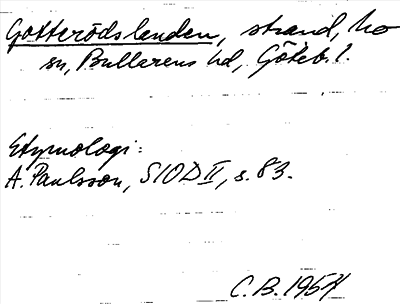 Gotterödslanden, strand, Mo
sn, Bullarens hd, Göteb. l.
Etymologi:
A. Paulsson, SIOD II, s. 83.
C. B. 1954